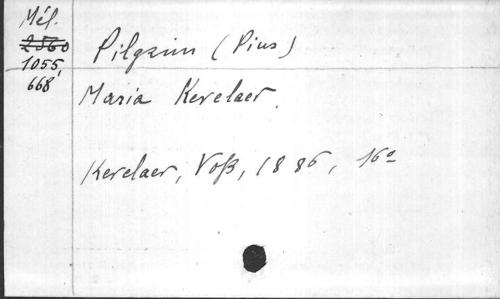 Mél.
2560
1055,
668
Pilgrim (Pius)
Maria Kevelaer.
Kevelaer, Voß, 1886, 16º